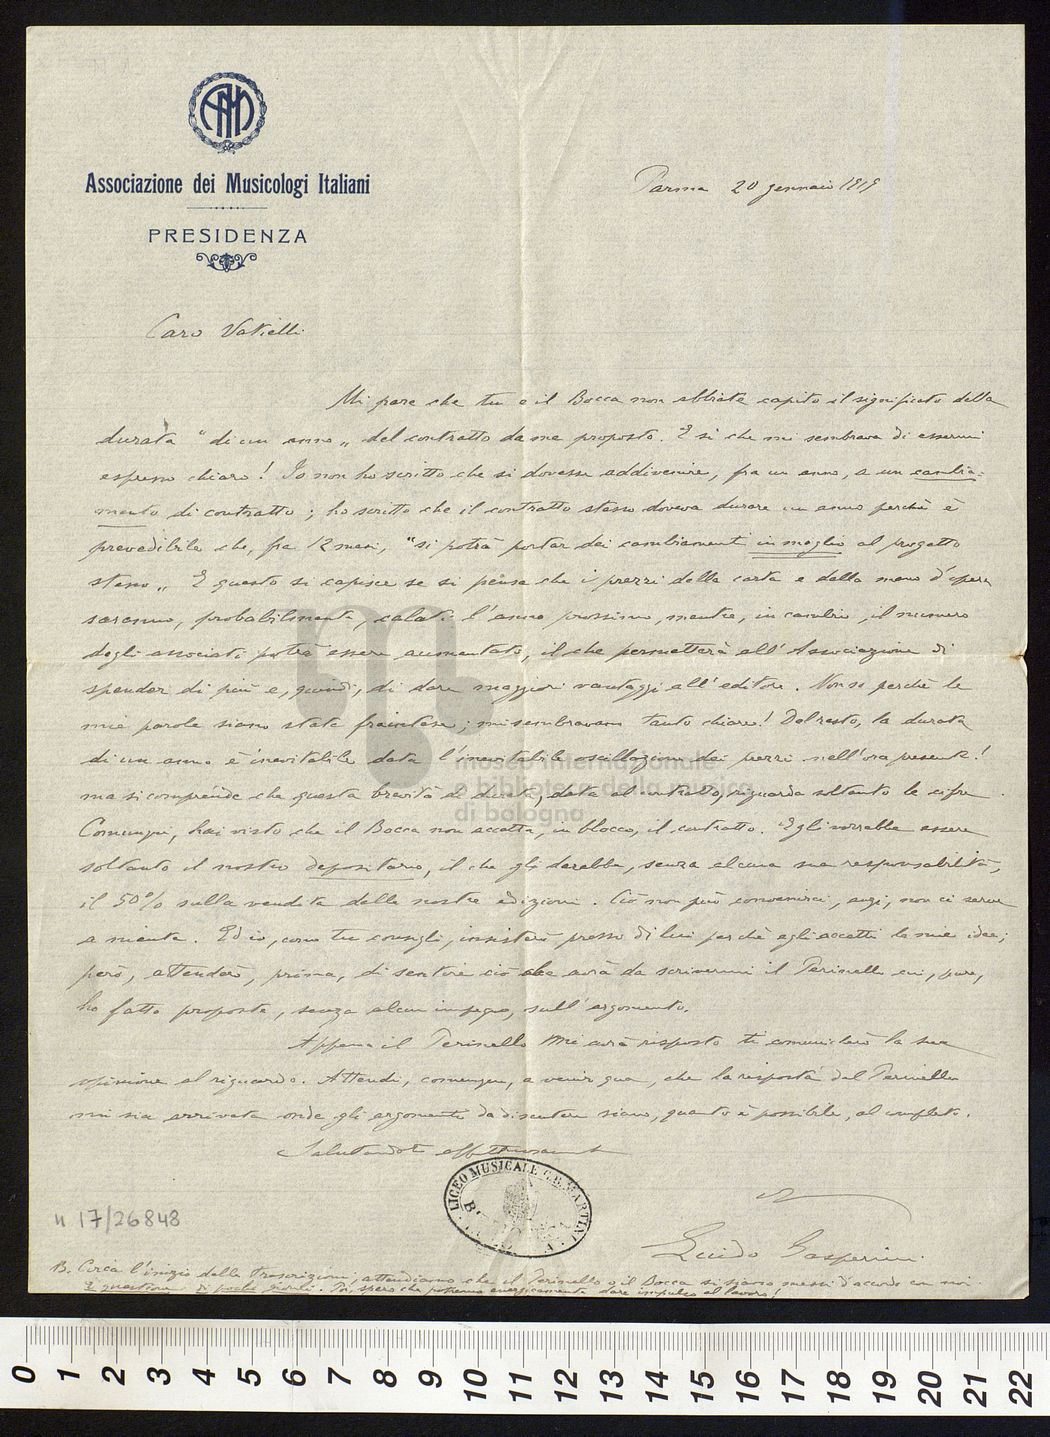 Associazione dei Musicologi Italiani
PRESIDENZA
Parma 20 gennaio 1919
Caro Vatielli
Mi pare che tu e il Bocca non abbiate capito il significato della
durata "di un anno„ del contratto da me proposto. E sì che mi sembrava di essermi
espresso chiaro! Io non ho scritto che si dovesse addivenire, fra un anno, a un cambia-
mento di contratto; ho scritto che il contratto stesso doveva durare un anno perchè è
prevedibile che, fra 12 mesi, "si potrà portar dei cambiamenti in meglio al progetto
stesso„ E questo si capisce se si pensa che i prezzi della carta e della mano d'opera
saranno, probabilmente, calati l'anno prossimo, mentre, in cambio, il numero
degli associati potrà essere aumentato, il che permetterà all'Associazione di
spender di più e, quindi, di dare maggiori vantaggi all'editore. Non so perchè le
mie parole siano state fraintese; mi sembravano tanto chiare! Del resto, la durata
di un anno è inevitabile data l'inevitabile oscillazione dei prezzi nell'ora presente!
ma si comprende che questa brevità di durata, data al contratto, riguarda soltanto le cifre.
Comunque, hai visto che il Bocca non accetta, in blocco, il contratto. Egli vorrebbe essere
soltanto il nostro depositario, il che gli darebbe, senza alcuna sua responsabilità,
il 50% sulla vendita delle nostre edizioni. Ciò non può convenirci, anzi, non ci serve
a niente. Ed io, come tu consigli, insisterò presso di lui perchè egli accetti le mie idee;
però, attenderò, prima, di sentire ciò che avrà da scrivermi il Perinello cui, pure,
ho fatto proposte, senza alcun impegno, sull'argomento.
Appena il Perinello mi avrà risposto ti comunicherò la sua
opinione al riguardo. Attendi, comunque, a venir qua, che la risposta del Perinello
mi sia arrivata onde gli argomenti da discutere siano, quanto è possibile, al completo.
Salutandoti affettuosamente
Guido Gasperini
LICEO MUSICALE G.B. MARTINI
n 17/26848
B. Circa l'inizio delle trascrizioni, attendiamo che il Perinello o il Bocca si siano messi d'accordo con noi
È questione di pochi giorni. Poi, spero che potremo energicamente dare impulso al lavoro!
museo internazionale
e biblioteca della musica
di bologna
0 1 2 3 4 5 6 7 8 9 10 11 12 13 14 15 16 17 18 19 20 21 22